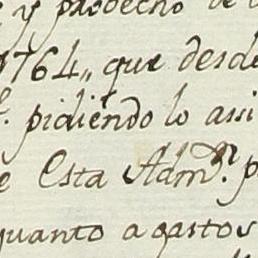 y provecho de
1764,, que desde
pidiendo lo assi
Esta Adm.n p
quanto a gastos